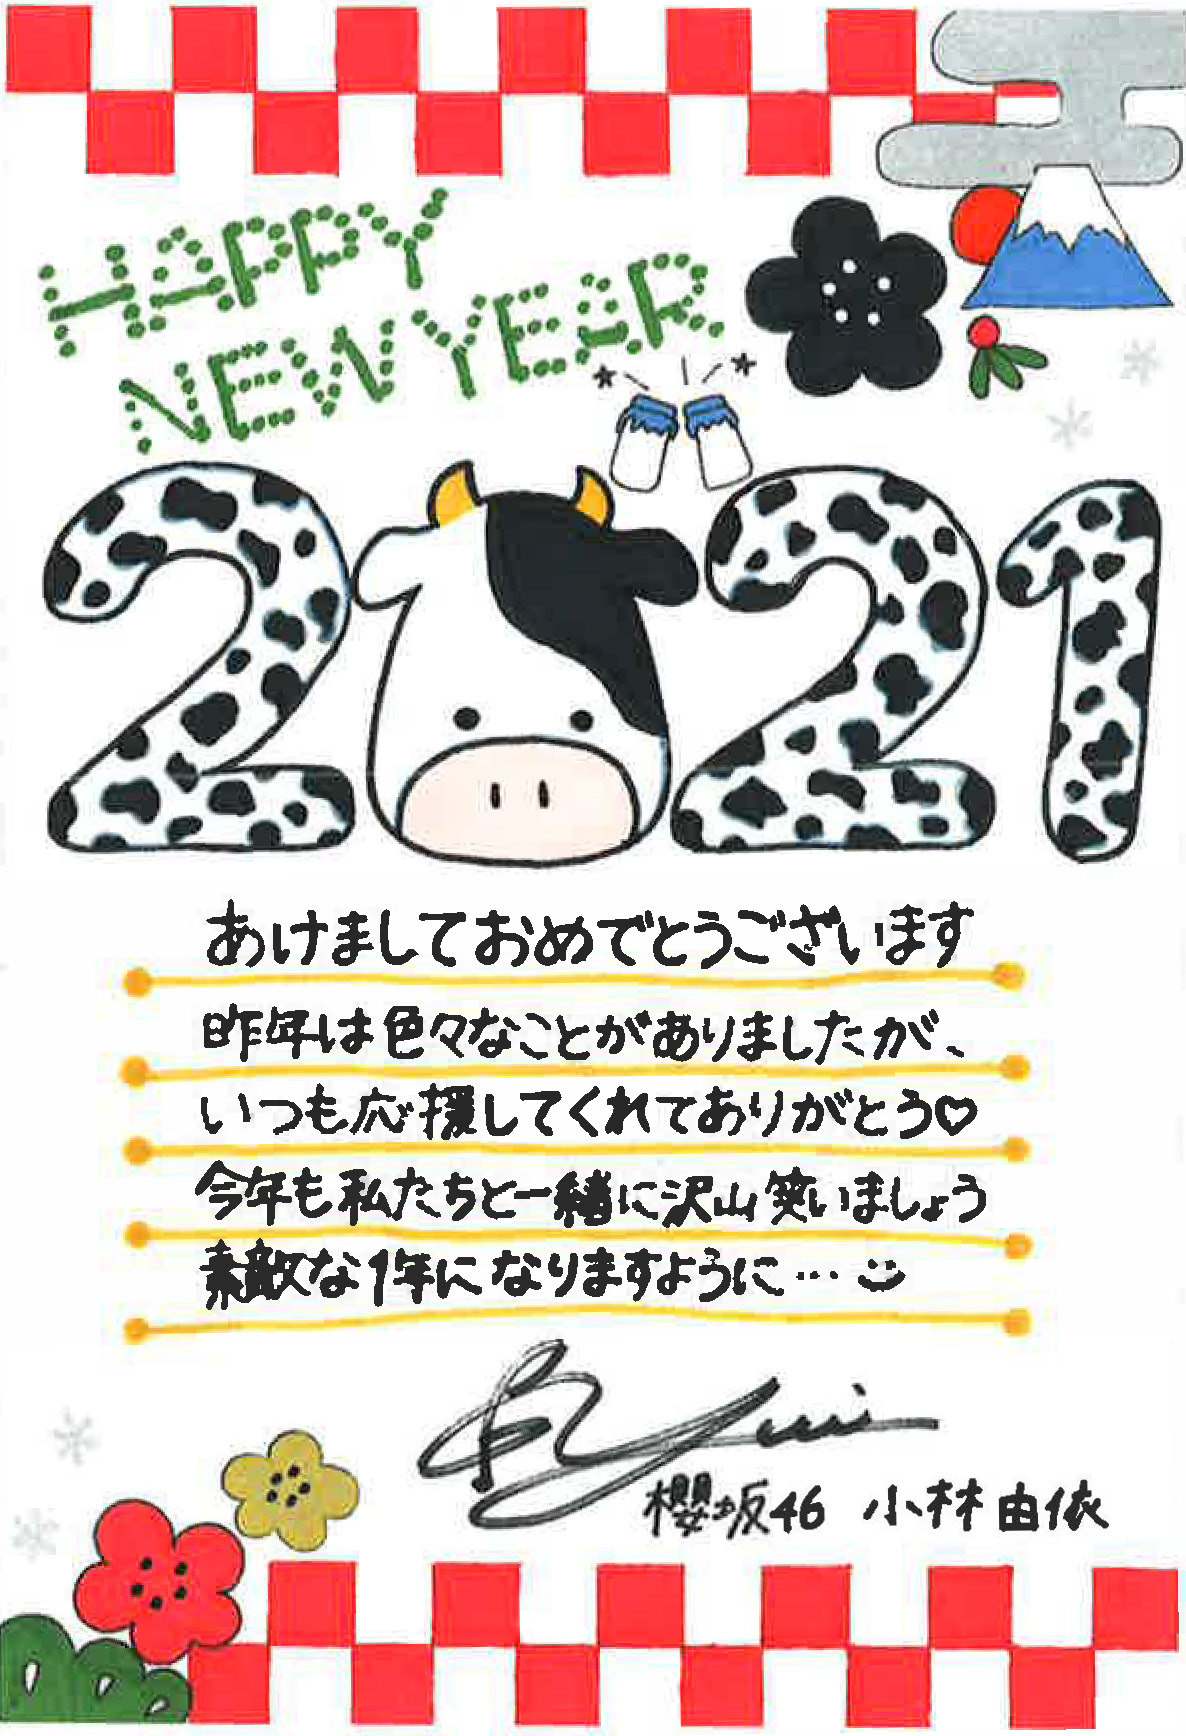 HAPPY
NEW YEAR
2021
あけましておめでとうございます
昨年は色々なことがありましたが、
いつも応援してくれてありがとう♡
今年も私たちと一緒に沢山笑いましょう
素敵な1年になりますように…
櫻坂46 小林由依